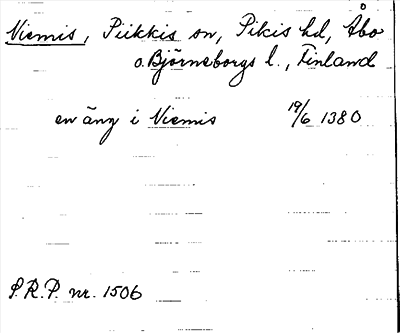 Niemis, Piikkis sn, Pikis hd, Åbo
o. Björneborgs l., Finland
en äng i Niemis 19/6 1380
P.R.P. nr. 1506